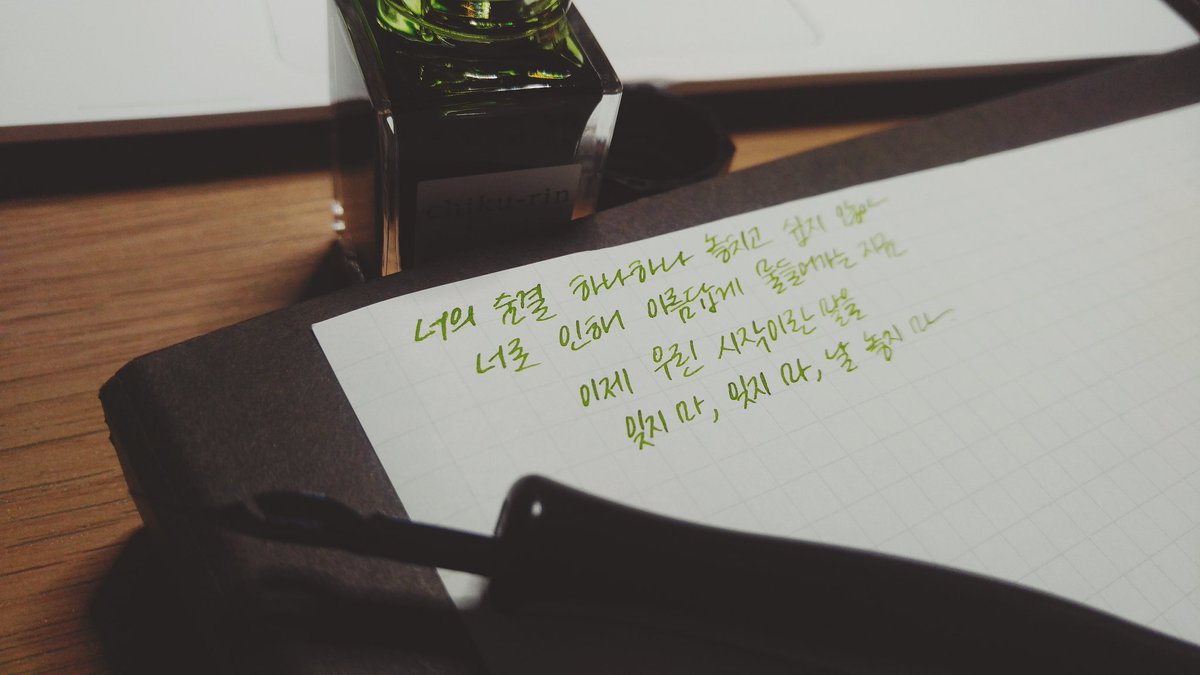 chiku-rin
너의 숨결 하나하나 놓치고 싶지 않아
너로 인해 아름답게 물들어가는 지금
이제 우린 시작이란 말을
잊지 마, 잊지 마, 날 놓지 마